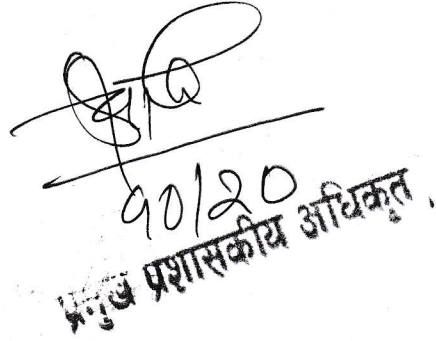 १०/२०
प्रमुख प्रशासकीय अधिकृत